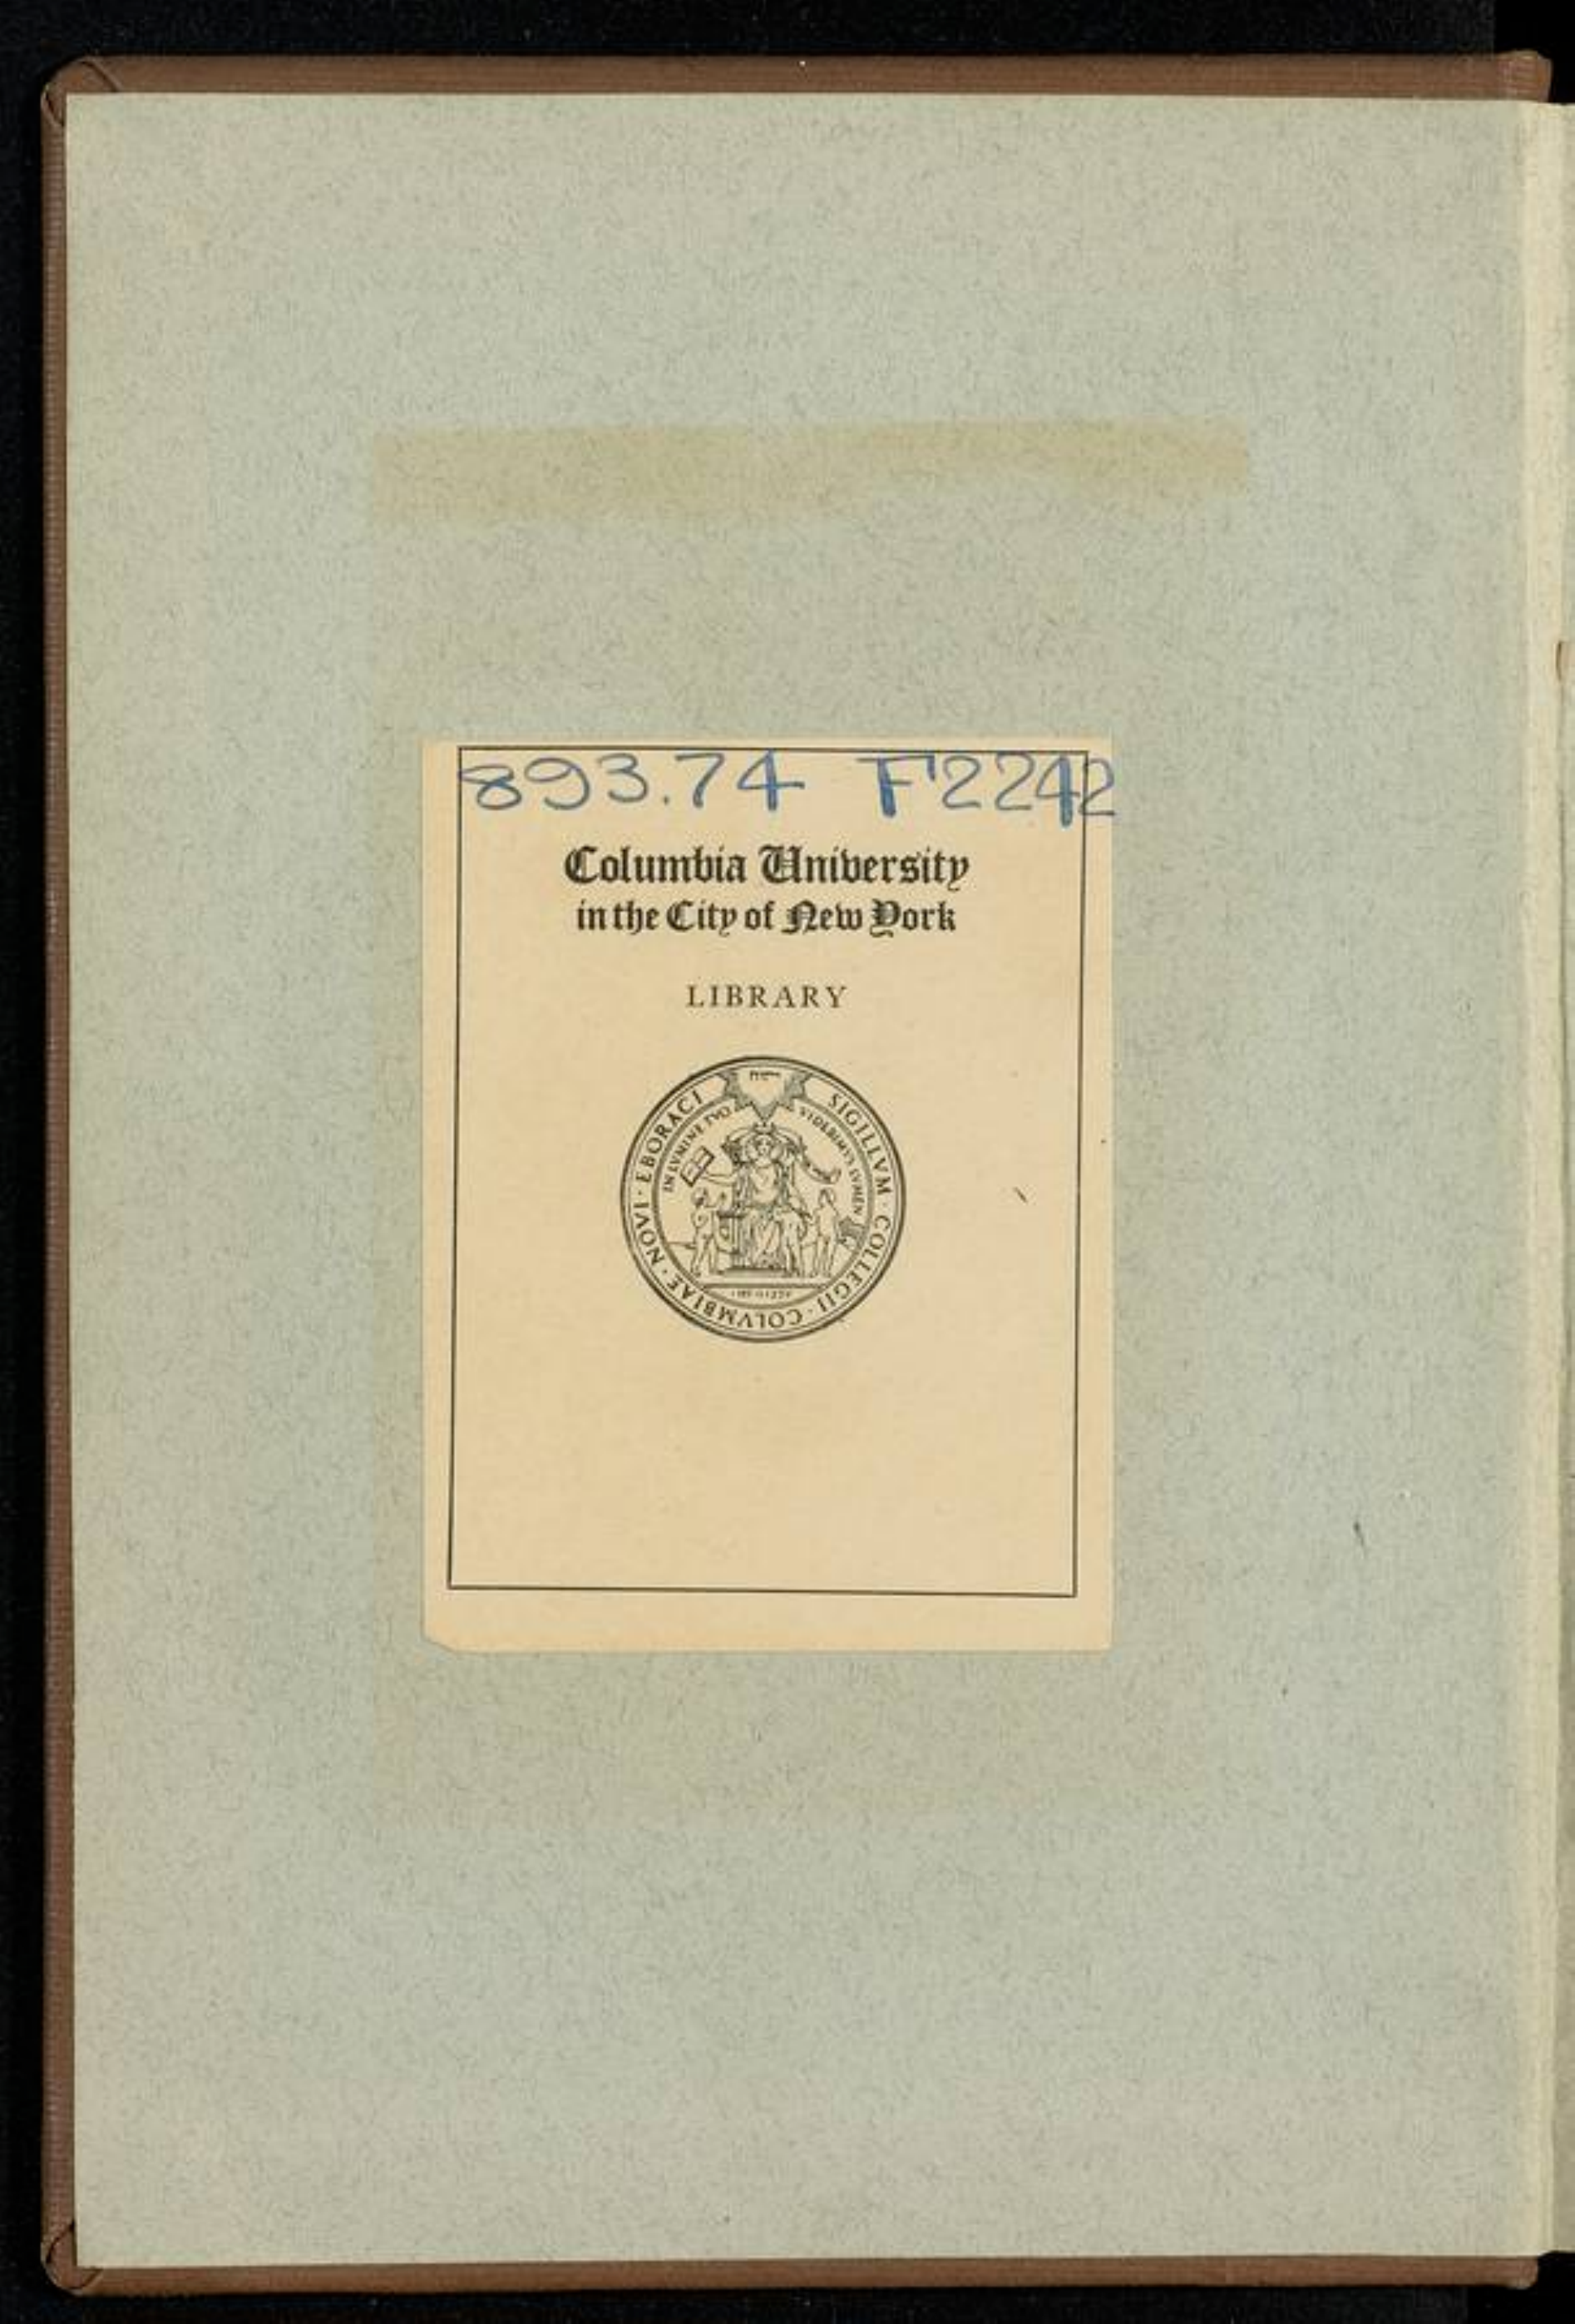 893.74 F2242
Columbia University
in the City of New York
LIBRARY
SIGILLVM · COLLEGII · COLVMBIAE · NOVI · EBORACI
IN LVMINE TVO VIDEBIMVS LVMEN